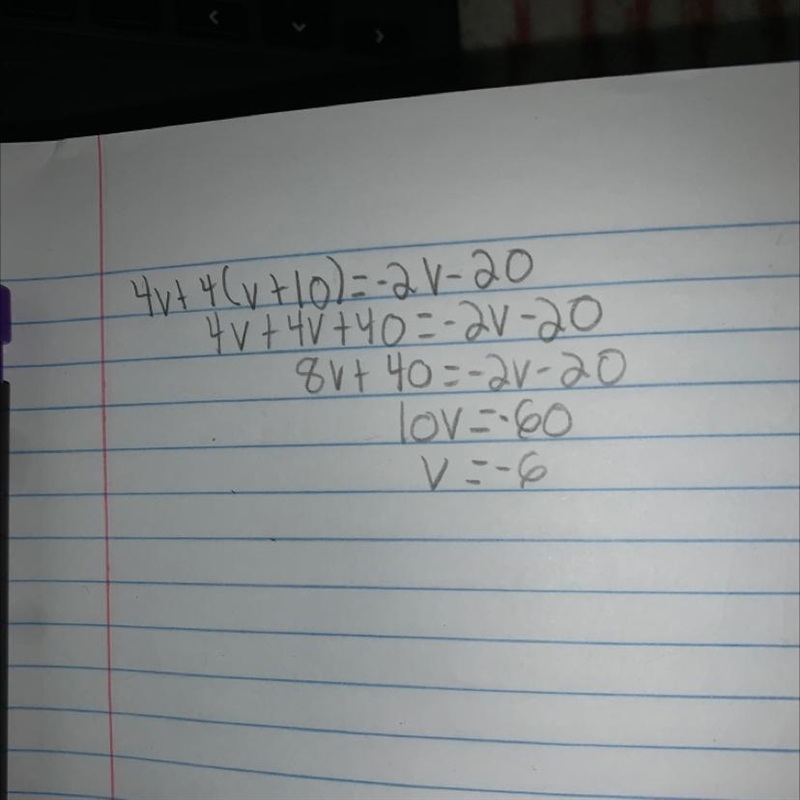 4v+4(v+10)=-2v-20
4v+4v+40=-2v-20
8v+40=-2v-20
10v=-60
v=-6